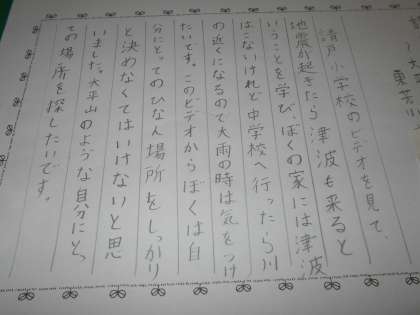 請戸小学校のビデオを見て、
地震が起きたら津波も来ると
いうことを学び、ぼくの家には津波
はこないけれど中学校へ行ったら川
の近くになるので大雨の時は気をつけ
たいです。このビデオからぼくは自
分にとってのひなん場所をしっかり
と決めなくてはいけないと思
いました。大平山のような自分にとっ
ての場所を探したいです。